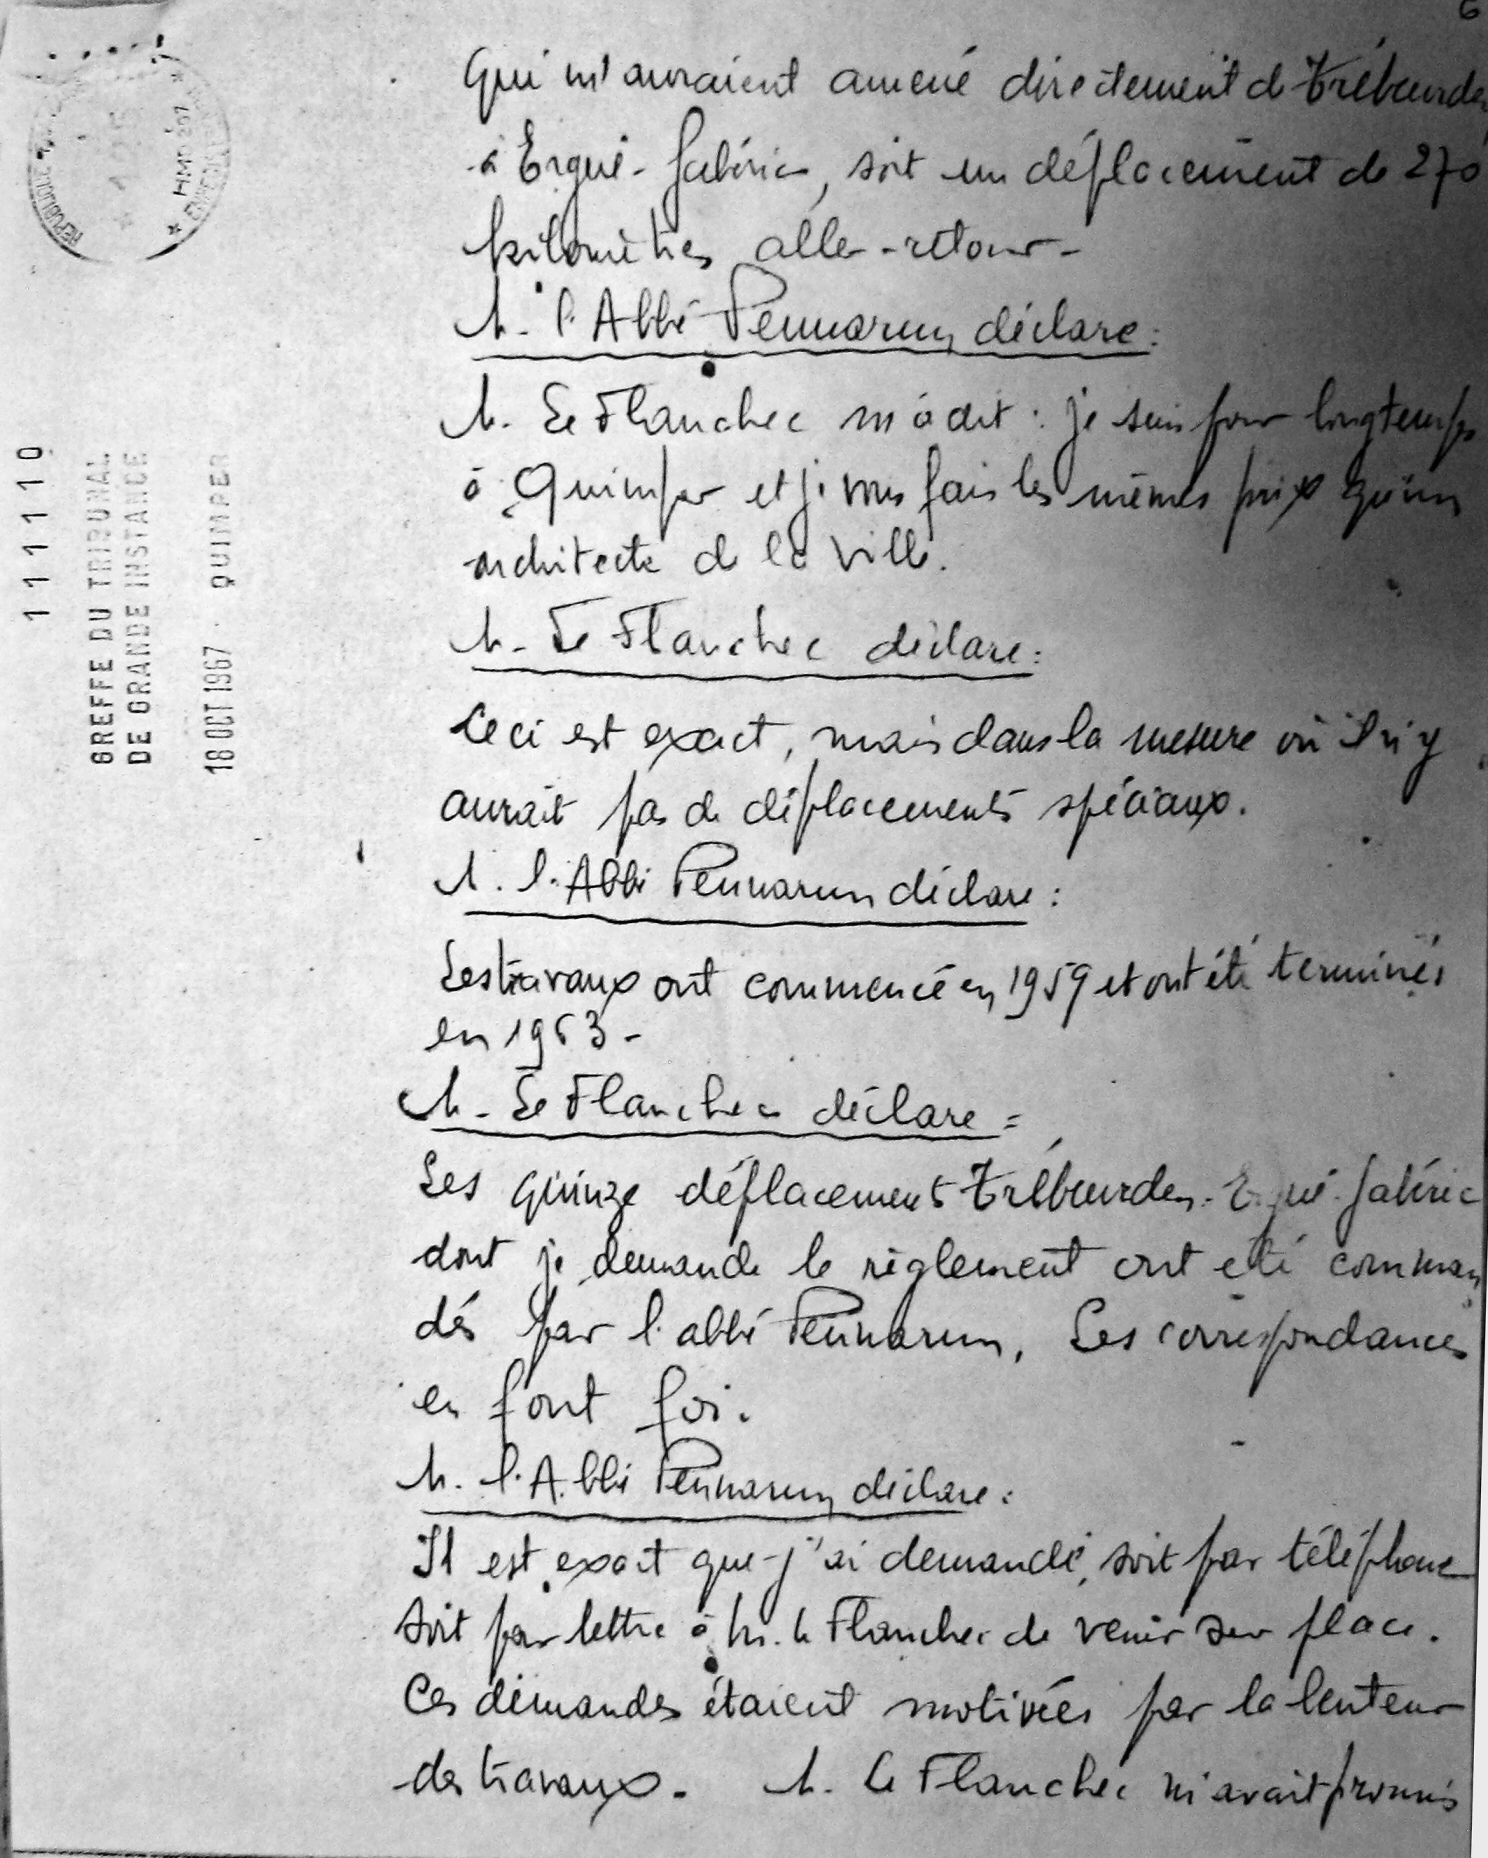 6
qui m'auraient amené directement de Trébeurden
à Ergué-Gabéric, soit un déplacement de 270
kilomètres aller-retour-
M. l'Abbé Pennarun déclare:
M. Le Flanchec m'a dit : je suis pour longtemps
à Quimper et je vous fais les mêmes prix qu'un
architecte de la ville.
M. Le Flanchec déclare:
Ceci est exact, mais dans la mesure où il n'y
aurait pas de déplacements spéciaux.
M. l'Abbé Pennarun déclare :
Les travaux ont commencé en 1959 et ont été terminés
en 1963 -
M. Le Flanchec déclare =
Les quinze déplacements Trébeurden-Ergué-Gabéric
dont je demande le règlement ont été comman
dés par l'abbé Pennarun, Les correspondances
en font foi.
M. l'Abbé Pennarun déclare :
Il est exact que j'ai demandé, soit par téléphone
soit par lettre à M. Le Flanchec de venir sur place.
Ces demandes étaient motivées par la lenteur
des travaux. M. Le Flanchec m'avait promis
111110
GREFFE DU TRIBUNAL
DE GRANDE INSTANCE
18 OCT 1967 · QUIMPER
REPUBLIQUE
HMD 207